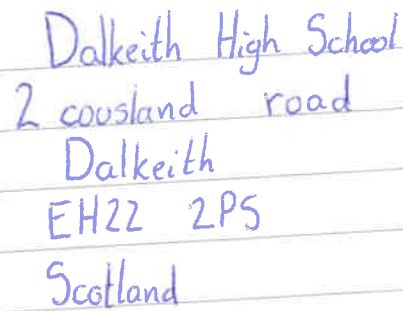 Dalkeith High School
2 cousland road
Dalkeith
EH22 2PS
Scotland